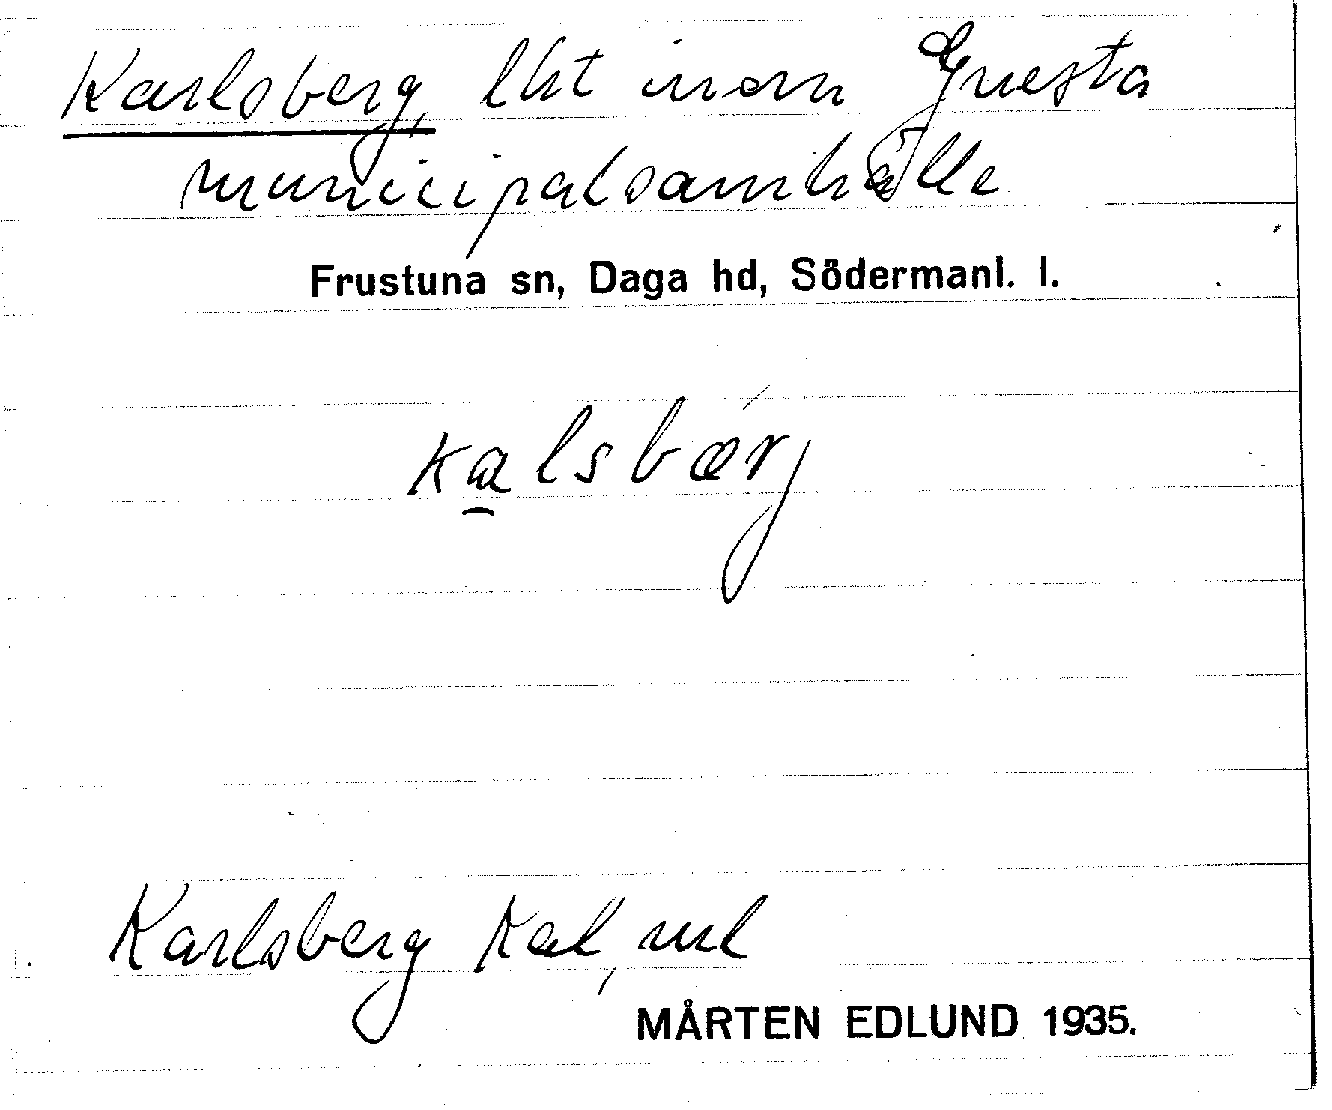 Karlsberg, lht inom Gnesta
municipalsamhälle
Frustuna sn, Daga hd, Södermanl. l.
ka̠lsbærj
Karlsberg Kal,
MÅRTEN EDLUND 1935.